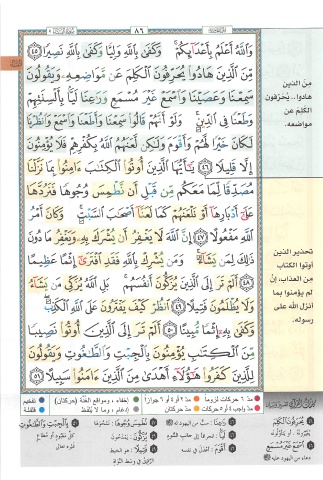 ٨٦
وَاللَّهُ أَعْلَمُ بِأَعْدَائِكُمْ وَكَفَىٰ بِاللَّهِ وَلِيًّا وَكَفَىٰ بِاللَّهِ نَصِيرًا ٤٥
مِّنَ الَّذِينَ هَادُوا يُحَرِّفُونَ الْكَلِمَ عَن مَّوَاضِعِهِ وَيَقُولُونَ
سَمِعْنَا وَعَصَيْنَا وَاسْمَعْ غَيْرَ مُسْمَعٍ وَرَاعِنَا لَيًّا بِأَلْسِنَتِهِمْ
وَطَعْنًا فِي الدِّينِ وَلَوْ أَنَّهُمْ قَالُوا سَمِعْنَا وَأَطَعْنَا وَاسْمَعْ وَانظُرْنَا
لَكَانَ خَيْرًا لَّهُمْ وَأَقْوَمَ وَلَٰكِن لَّعَنَهُمُ اللَّهُ بِكُفْرِهِمْ فَلَا يُؤْمِنُونَ
إِلَّا قَلِيلًا ٤٦ يَا أَيُّهَا الَّذِينَ أُوتُوا الْكِتَابَ آمِنُوا بِمَا نَزَّلْنَا
مُصَدِّقًا لِّمَا مَعَكُم مِّن قَبْلِ أَن نَّطْمِسَ وُجُوهًا فَنَرُدَّهَا
عَلَىٰ أَدْبَارِهَا أَوْ نَلْعَنَهُمْ كَمَا لَعَنَّا أَصْحَابَ السَّبْتِ وَكَانَ أَمْرُ
اللَّهِ مَفْعُولًا ٤٧ إِنَّ اللَّهَ لَا يَغْفِرُ أَن يُشْرَكَ بِهِ وَيَغْفِرُ مَا دُونَ
ذَٰلِكَ لِمَن يَشَاءُ وَمَن يُشْرِكْ بِاللَّهِ فَقَدِ افْتَرَىٰ إِثْمًا عَظِيمًا
٤٨ أَلَمْ تَرَ إِلَى الَّذِينَ يُزَكُّونَ أَنفُسَهُم بَلِ اللَّهُ يُزَكِّي مَن يَشَاءُ
وَلَا يُظْلَمُونَ فَتِيلًا ٤٩ انظُرْ كَيْفَ يَفْتَرُونَ عَلَى اللَّهِ الْكَذِبَ
وَكَفَىٰ بِهِ إِثْمًا مُّبِينًا ٥٠ أَلَمْ تَرَ إِلَى الَّذِينَ أُوتُوا نَصِيبًا
مِّنَ الْكِتَابِ يُؤْمِنُونَ بِالْجِبْتِ وَالطَّاغُوتِ وَيَقُولُونَ
لِلَّذِينَ كَفَرُوا هَٰؤُلَاءِ أَهْدَىٰ مِنَ الَّذِينَ آمَنُوا سَبِيلًا ٥١
من الذين
هادوا.. يُحَرِّفون
الكلم عن
مواضعه.
تحذير الذين
أوتوا الكتاب
من العذاب، إنْ
لم يؤمنوا بما
أنزل الله على
رسوله.